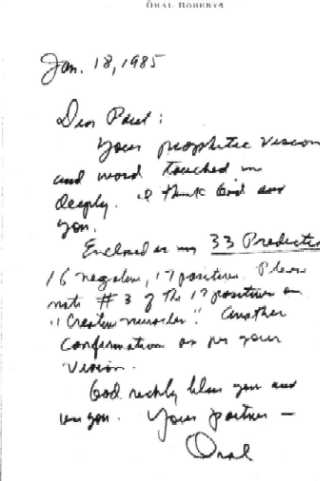 ORAL ROBERTS
Jan. 18, 1985
Dear Paul:
Your prophetic vision
and word touched me
deeply. I thank God and
you.
Enclosed is my 33 Predictio
16 negative, 17 positive. Please
note #3 of the 17 positive on
"Creative miracles." Another
confirmation as per your
vision.
God richly bless you and
use you. Your partner —
Oral